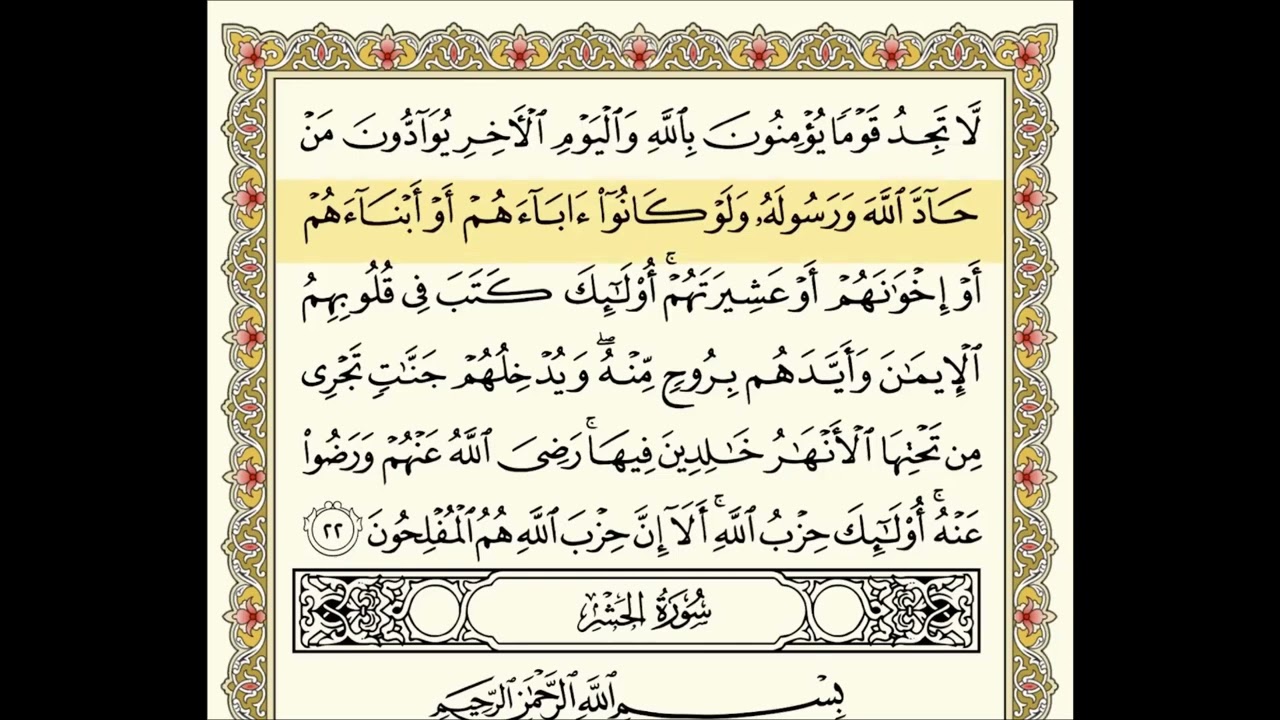 لَّا تَجِدُ قَوْمًا يُؤْمِنُونَ بِاللَّهِ وَالْيَوْمِ الْأَخِرِ يُوَآدُّونَ مَنْ
حَآدَّ اللَّهَ وَرَسُولَهُۥ وَلَوْ كَانُوٓا۟ ءَابَآءَهُمْ أَوْ أَبْنَآءَهُمْ
أَوْ إِخْوَٰنَهُمْ أَوْ عَشِيرَتَهُمْ ۚ أُو۟لَٰٓئِكَ كَتَبَ فِى قُلُوبِهِمُ
الْإِيمَٰنَ وَأَيَّدَهُم بِرُوحٍ مِّنْهُ ۖ وَيُدْخِلُهُمْ جَنَّٰتٍ تَجْرِى
مِن تَحْتِهَا الْأَنْهَٰرُ خَٰلِدِينَ فِيهَا ۚ رَضِىَ اللَّهُ عَنْهُمْ وَرَضُوا۟
عَنْهُ ۚ أُو۟لَٰٓئِكَ حِزْبُ اللَّهِ ۚ أَلَآ إِنَّ حِزْبَ اللَّهِ هُمُ الْمُفْلِحُونَ ٢٢
سُورَةُ الحَشْرِ
بِسْمِ اللَّهِ الرَّحْمَٰنِ الرَّحِيمِ